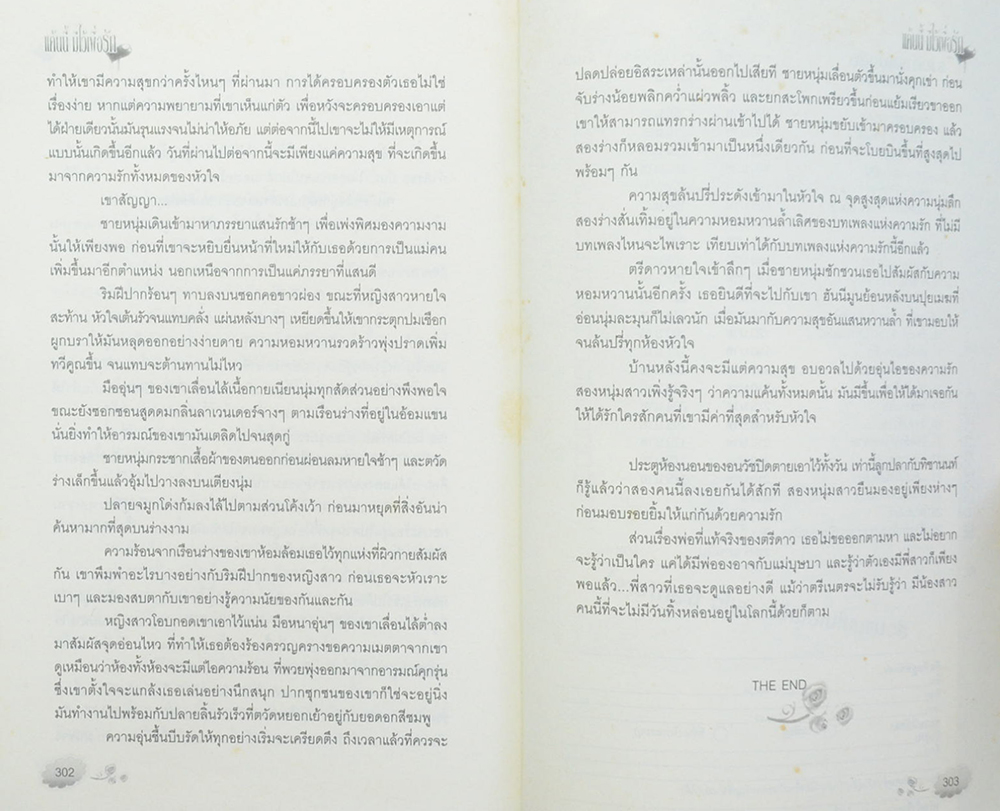 แค้นนี้ มีไว้เพื่อรัก
ทำให้เขามีความสุขกว่าครั้งไหนๆ ที่ผ่านมา การได้ครอบครองตัวเธอไม่ใช่
เรื่องง่าย หากแต่ความพยายามที่เขาเห็นแก่ตัว เพื่อหวังจะครอบครองเอาแต่
ได้ฝ่ายเดียวนั้นมันรุนแรงจนไม่น่าให้อภัย แต่ต่อจากนี้ไปเขาจะไม่ให้มีเหตุการณ์
แบบนั้นเกิดขึ้นอีกแล้ว วันที่ผ่านไปต่อจากนี้จะมีเพียงแค่ความสุข ที่จะเกิดขึ้น
มาจากความรักทั้งหมดของหัวใจ
เขาสัญญา...
ชายหนุ่มเดินเข้ามาหาภรรยาแสนรักช้าๆ เพื่อเพ่งพิศมองความงาม
นั้นให้เพียงพอ ก่อนที่เขาจะหยิบยื่นหน้าที่ใหม่ให้กับเธอด้วยการเป็นแม่คน
เพิ่มขึ้นมาอีกตำแหน่ง นอกเหนือจากการเป็นแค่ภรรยาที่แสนดี
ริมฝีปากร้อนๆ ทาบลงบนซอกคอขาวผ่อง ขณะที่หญิงสาวหายใจ
สะท้าน หัวใจเต้นรัวจนแทบคลั่ง แผ่นหลังบางๆ เหยียดขึ้นให้เขากระตุกปมเชือก
ผูกบราให้มันหลุดออกอย่างง่ายดาย ความหอมหวานรวดร้าวพุ่งปราดเพิ่ม
ทวีคูณขึ้น จนแทบจะต้านทานไม่ไหว
มืออุ่นๆ ของเขาเลื่อนไล้เนื้อกายเนียนนุ่มทุกสัดส่วนอย่างพึงพอใจ
ขณะยังซอกซอนสูดดมกลิ่นลาเวนเดอร์จางๆ ตามเรือนร่างที่อยู่ในอ้อมแขน
นั่นยิ่งทำให้อารมณ์ของเขามันเตลิดไปจนสุดกู่
ชายหนุ่มกระชากเสื้อผ้าของตนออกก่อนผ่อนลมหายใจช้าๆ และตวัด
ร่างเล็กขึ้นแล้วอุ้มไปวางลงบนเตียงนุ่ม
ปลายจมูกโด่งก้มลงไล้ไปตามส่วนโค้งเว้า ก่อนมาหยุดที่สิ่งอันน่า
ค้นหามากที่สุดบนร่างงาม
ความร้อนจากเรือนร่างของเขาห้อมล้อมเธอไว้ทุกแห่งที่ผิวกายสัมผัส
กัน เขาพึมพำอะไรบางอย่างกับริมฝีปากของหญิงสาว ก่อนเธอจะหัวเราะ
เบาๆ และมองสบตากับเขาอย่างรู้ความนัยของกันและกัน
หญิงสาวโอบกอดเขาเอาไว้แน่น มือหนาอุ่นๆ ของเขาเลื่อนไล้ต่ำลง
มาสัมผัสจุดอ่อนไหว ที่ทำให้เธอต้องร้องครวญครางขอความเมตตาจากเขา
ดูเหมือนว่าห้องทั้งห้องจะมีแต่ไอความร้อน ที่พวยพุ่งออกมาจากอารมณ์คุกรุ่น
ซึ่งเขาตั้งใจจะแกล้งเธอเล่นอย่างนึกสนุก ปากซุกซนของเขาก็ใช่จะอยู่นิ่ง
มันทำงานไปพร้อมกับปลายลิ้นรัวเร็วที่ตวัดหยอกเย้าอยู่กับยอดอกสีชมพู
ความอุ่นชื้นบีบรัดให้ทุกอย่างเริ่มจะเครียดตึง ถึงเวลาแล้วที่ควรจะ
302
แค้นนี้ มีไว้เพื่อรัก
ปลดปล่อยอิสระเหล่านั้นออกไปเสียที ชายหนุ่มเลื่อนตัวขึ้นมานั่งคุกเข่า ก่อน
จับร่างน้อยพลิกคว่ำแผ่วพลิ้ว และยกสะโพกเพรียวขึ้นก่อนแย้มเรียวขาออก
เขาให้สามารถแทรกร่างผ่านเข้าไปได้ ชายหนุ่มขยับเข้ามาครอบครอง แล้ว
สองร่างก็หลอมรวมเข้ามาเป็นหนึ่งเดียวกัน ก่อนที่จะโบยบินขึ้นที่สูงสุดไป
พร้อมๆ กัน
ความสุขล้นปรี่ประดังเข้ามาในหัวใจ ณ จุดสูงสุดแห่งความนุ่มลึก
สองร่างสั่นเทิ้มอยู่ในความหอมหวานล้ำเลิศของบทเพลงแห่งความรัก ที่ไม่มี
บทเพลงไหนจะไพเราะ เทียบเท่าได้กับบทเพลงแห่งความรักนี้อีกแล้ว
ตรีดาวหายใจเข้าลึกๆ เมื่อชายหนุ่มชักชวนเธอไปสัมผัสกับความ
หอมหวานนั้นอีกครั้ง เธอยินดีที่จะไปกับเขา ฮันนีมูนย้อนหลังบนปุยเมฆที่
อ่อนนุ่มละมุนก็ไม่เลวนัก เมื่อมันมากับความสุขอันแสนหวานล้ำ ที่เขามอบให้
จนล้นปรี่ทุกห้องหัวใจ
บ้านหลังนี้คงจะมีแต่ความสุข อบอวลไปด้วยอุ่นไอของความรัก
สองหนุ่มสาวเพิ่งรู้จริงๆ ว่าความแค้นทั้งหมดนั้น มันมีขึ้นเพื่อให้ได้มาเจอกัน
ให้ได้รักใครสักคนที่เขามีค่าที่สุดสำหรับหัวใจ
ประตูห้องนอนของอนวัชปิดตายเอาไว้ทั้งวัน เท่านี้ลูกปลากับทิชานนท์
ก็รู้แล้วว่าสองคนนี้ลงเอยกันได้สักที สองหนุ่มสาวยืนมองอยู่เพียงห่างๆ
ก่อนมอบรอยยิ้มให้แก่กันด้วยความรัก
ส่วนเรื่องพ่อที่แท้จริงของตรีดาว เธอไม่ขอออกตามหา และไม่อยาก
จะรู้ว่าเป็นใคร แค่ได้มีพ่อองอาจกับแม่บุษบา และรู้ว่าตัวเองมีพี่สาวก็เพียง
พอแล้ว...พี่สาวที่เธอจะดูแลอย่างดี แม้ว่าตรีเนตรจะไม่รับรู้ว่า มีน้องสาว
คนนี้ที่จะไม่มีวันทิ้งหล่อนอยู่ในโลกนี้ด้วยก็ตาม
THE END
303